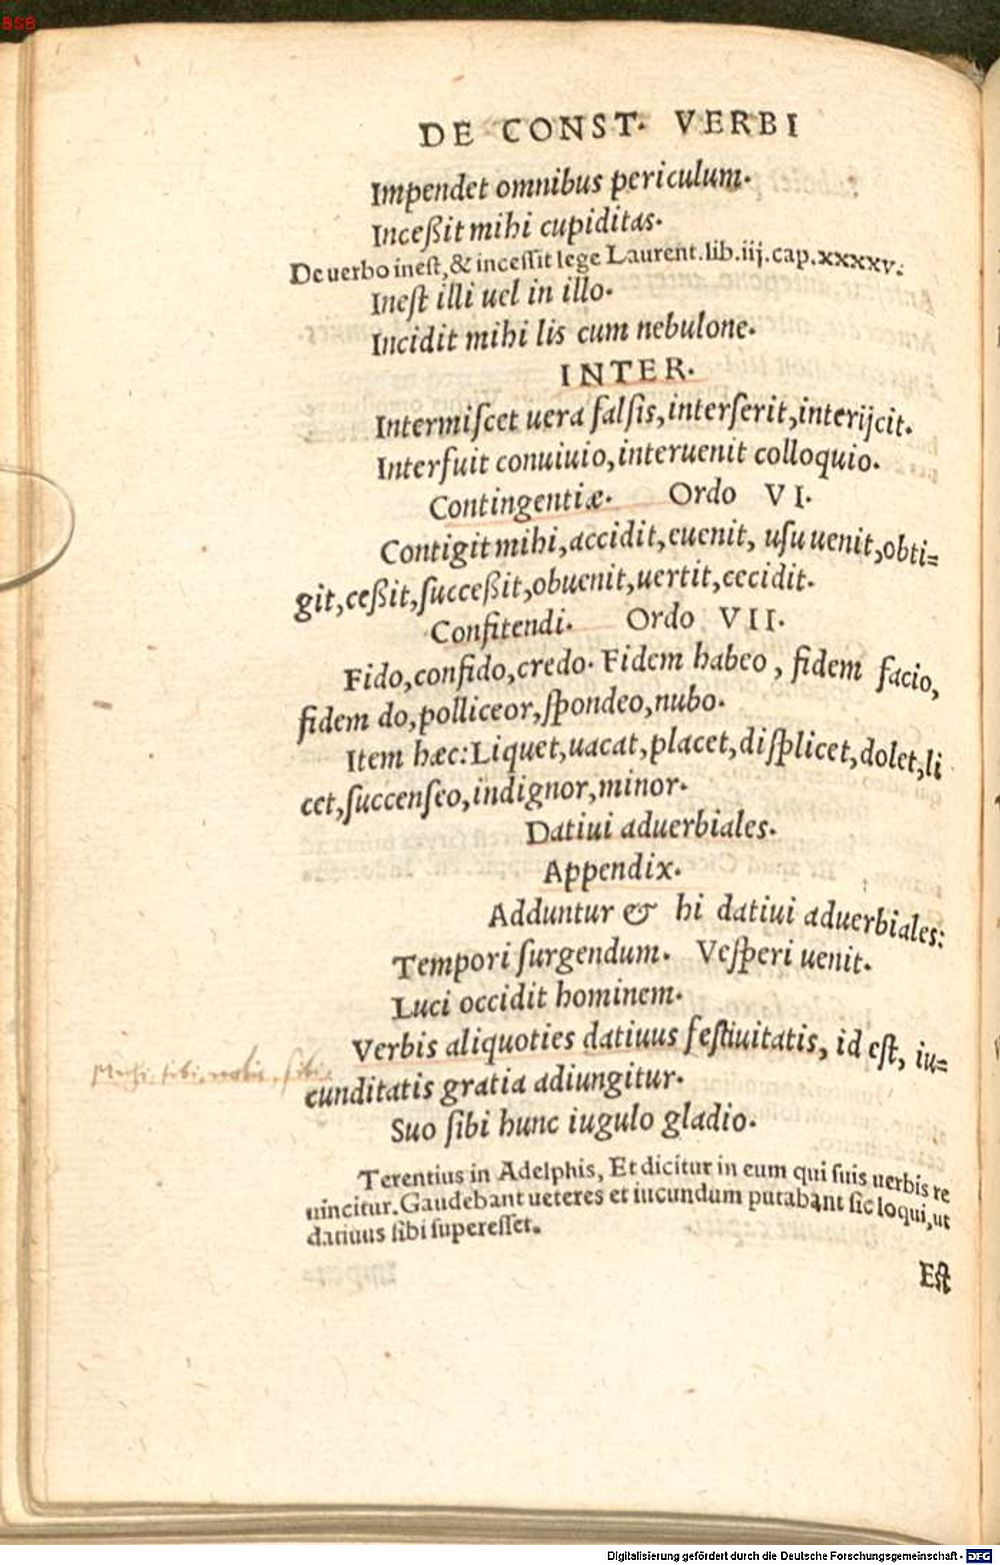 BSB
DE CONST. VERBI
Impendet omnibus periculum.
Inceßit mihi cupiditas.
De uerbo inest, & incessit lege Laurent. lib. iij. cap. xxxxv.
Inest illi uel in illo.
Incidit mihi lis cum nebulone.
INTER.
Intermiscet uera falsis, interserit, interijcit.
Interfuit conuiuio, interuenit colloquio.
Contingentiæ. Ordo VI.
Contigit mihi, accidit, euenit, usu uenit, obti=
git, ceßit, succeßit, obuenit, uertit, cecidit.
Confitendi. Ordo VII.
Fido, confido, credo. Fidem habeo, fidem facio,
fidem do, polliceor, spondeo, nubo.
Item hæc: Liquet, uacat, placet, displicet, dolet, li
cet, succenseo, indignor, minor.
Datiui aduerbiales.
Appendix.
Adduntur & hi datiui aduerbiales:
Tempori surgendum. Vesperi uenit.
Luci occidit hominem.
Verbis aliquoties datiuus festiuitatis, id est, iu=
Mihi, tibi, nobis, sibi.
cunditatis gratia adiungitur.
Suo sibi hunc iugulo gladio.
Terentius in Adelphis, Et dicitur in eum qui suis uerbis re
uincitur. Gaudebant ueteres et iucundum putabant sic loqui, ut
datiuus sibi superesset.
Est
Digitalisierung gefördert durch die Deutsche Forschungsgemeinschaft - DFG